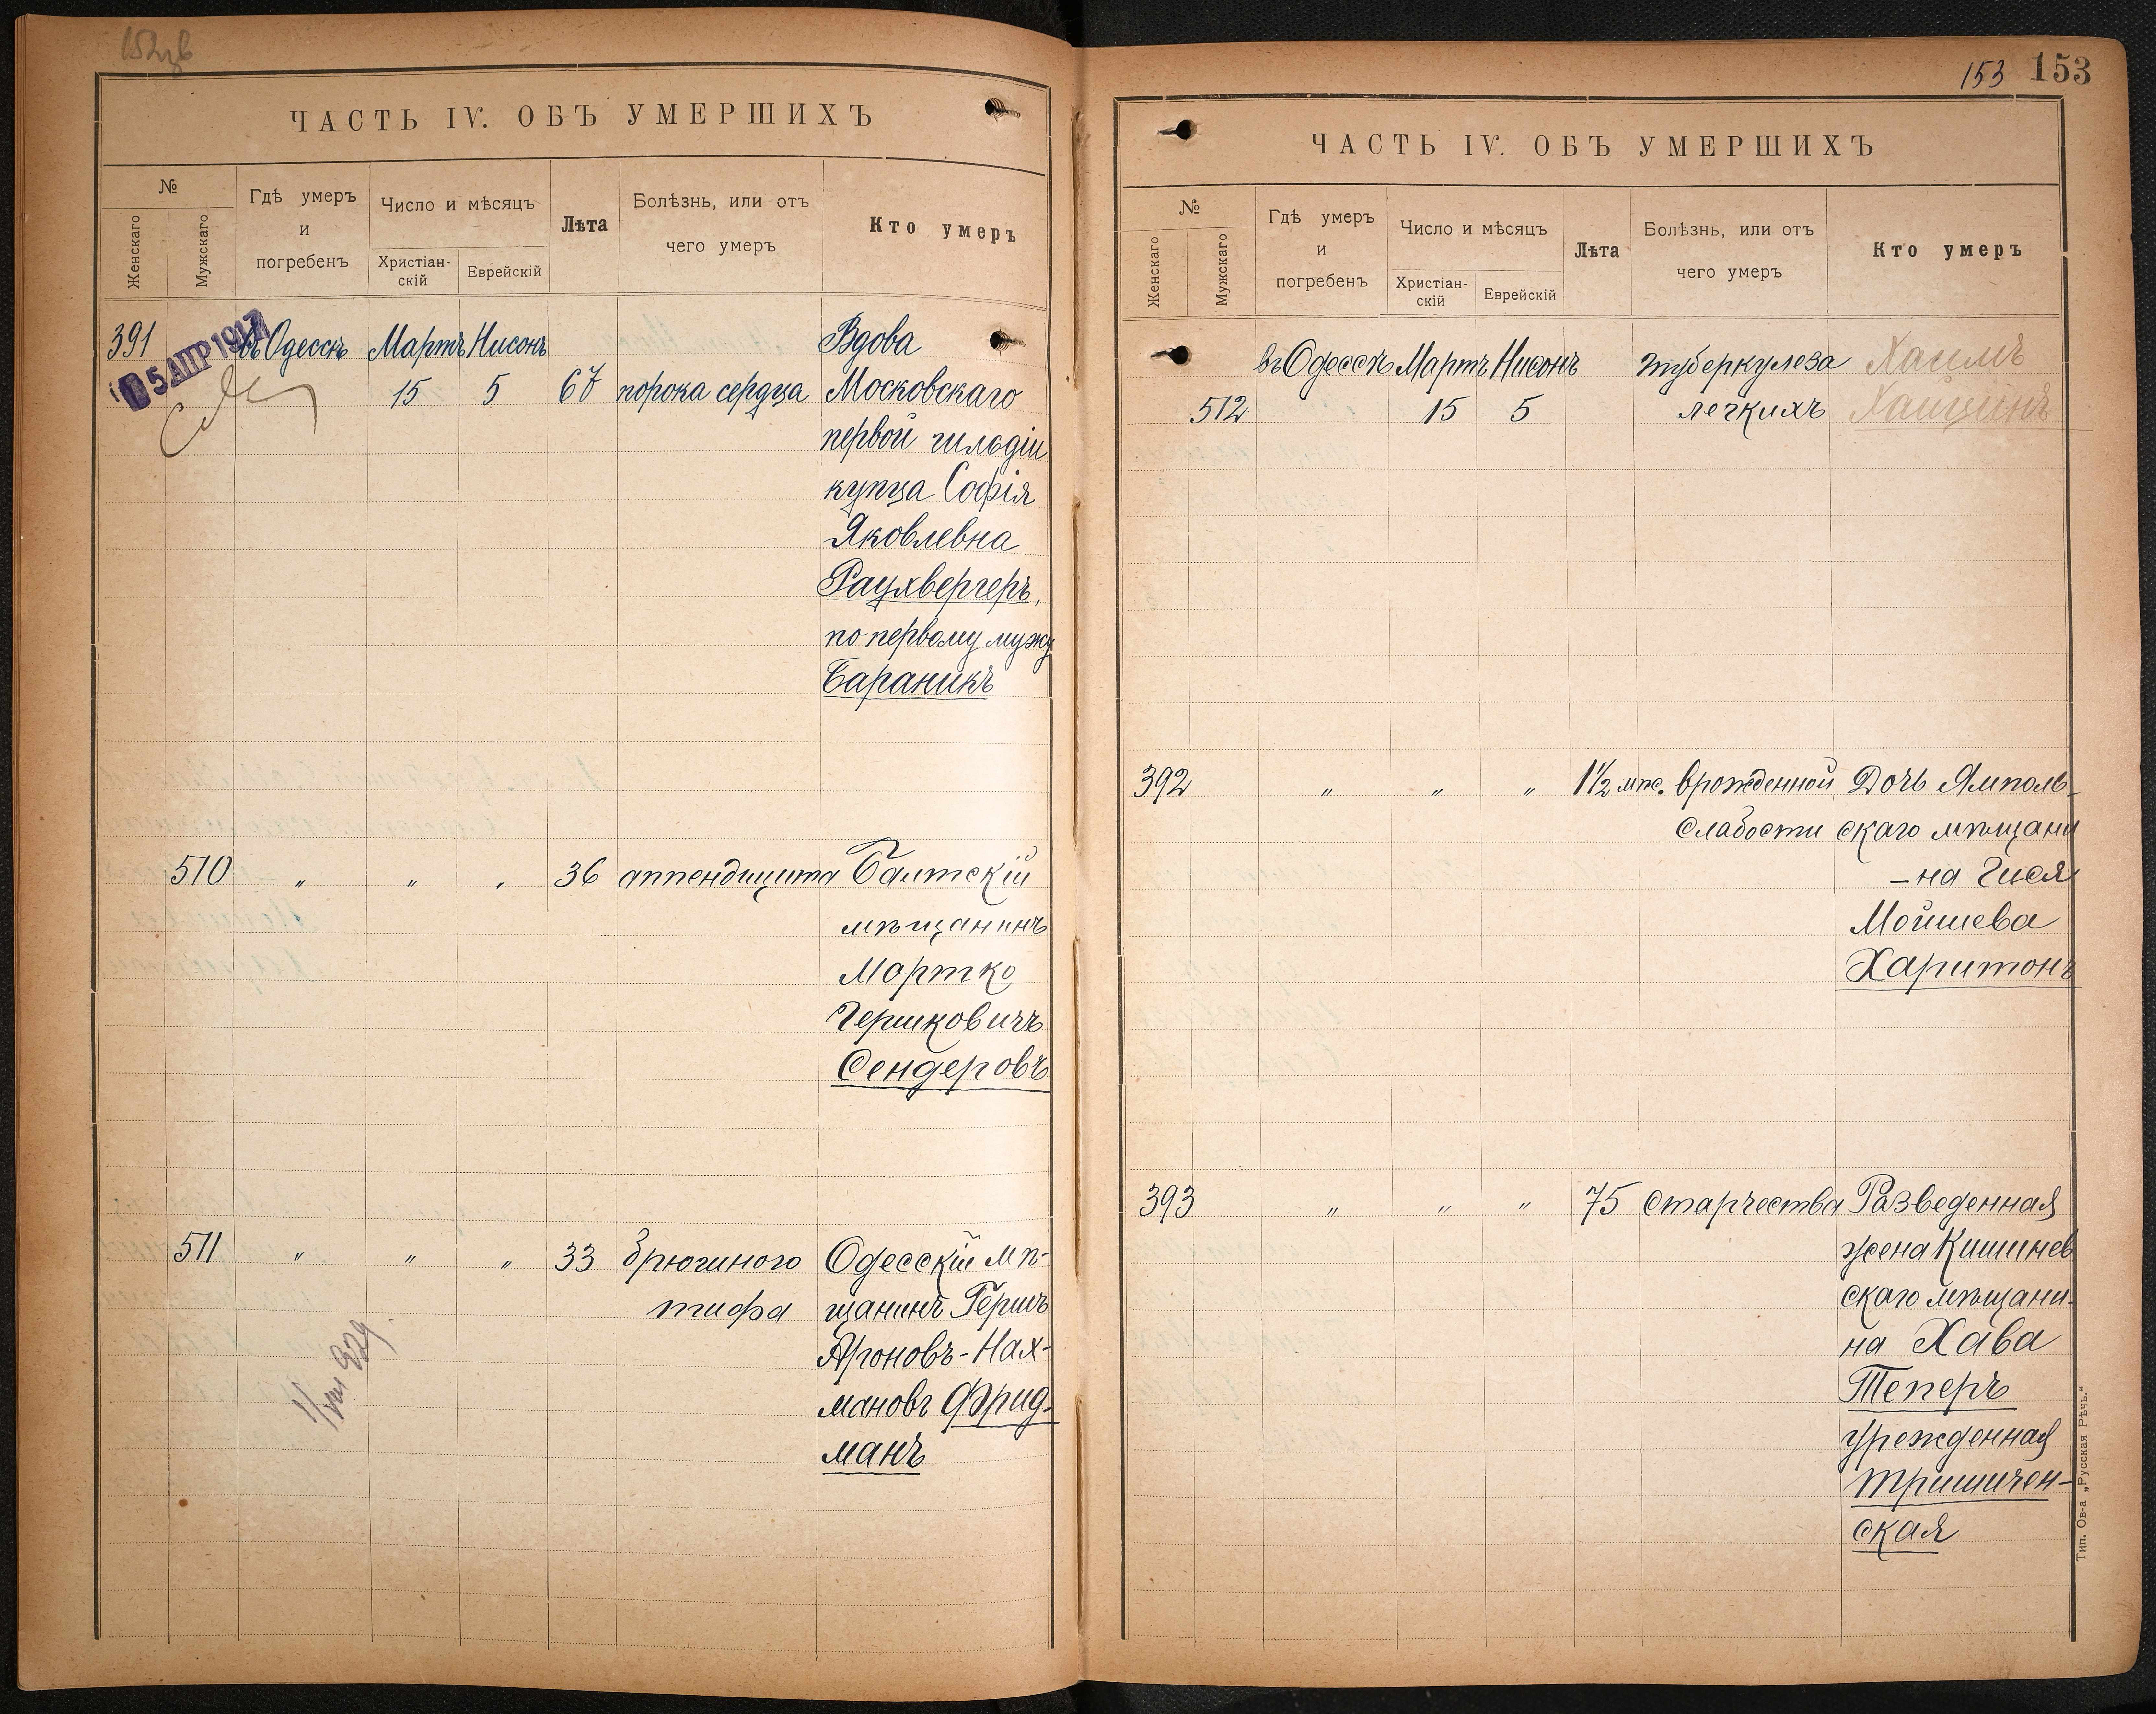 ЧАСТЬ IV. ОБЪ УМЕРШИХЪ
№
Женскаго
Мужскаго
Гдѣ умеръ
и
погребенъ
Число и мѣсяцъ
Христіан-
скій
Еврейскій
Лѣта
Болѣзнь, или отъ
чего умеръ
Кто умеръ
5 АПР 1917
391 въ Одессѣ Мартъ Нисонъ Вдова
15 5 67 порока сердца Московскаго
первой гильдіи
купца Софія
Яковлевна
Раухвергеръ,
по первому мужу
Бараникъ
510 " " " 36 аппендицита Балтскій
мѣщанинъ
Мортко
Гершковичъ
Сендеровъ
511 " " " 33 брюшного Одесскій мѣ-
тифа щанинъ Гершъ
Ароновъ-Нах-
мановъ Фрид-
манъ
153 153
ЧАСТЬ IV. ОБЪ УМЕРШИХЪ
№
Женскаго
Мужскаго
Гдѣ умеръ
и
погребенъ
Число и мѣсяцъ
Христіан-
скій
Еврейскій
Лѣта
Болѣзнь, или отъ
чего умеръ
Кто умеръ
въ Одессѣ Мартъ Нисонъ туберкулеза Хаимъ
512 15 5 легкихъ
392 " " " 1½ мѣс. врожденной Дочь Ямполь-
слабости скаго мѣщани
-на Гися
Мойшева
Харитонъ
393 " " " 75 старчества Разведенная
жена Кишинев
скаго мѣщани-
на Хава
Теперъ
урежденная
Тришичен-
ская
Тип. Ов-а „Русская Рѣчь.“